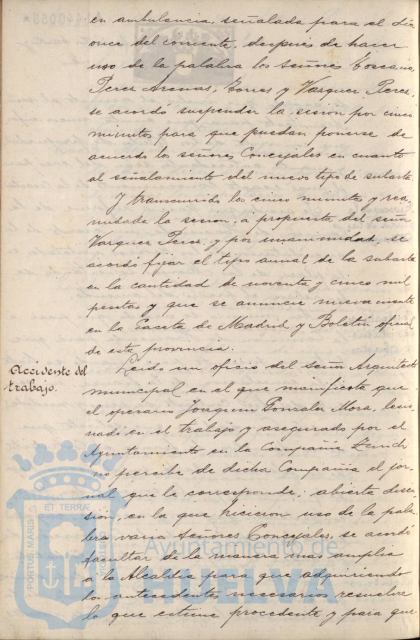 en ambulancia, señalada para el dia
once del corriente, despues de hacer
uso de la palabra los señores Toscano,
Perez Arenas, Torres y Vazquez Perez,
se acordó suspender la sesion por cinco
minutos para que puedan ponerse de
acuerdo los señores Concejales en cuanto
al señalamiento del nuevo tipo de subasta.
Y transcurridos los cinco minutos y rea-
nudada la sesion, á propuesta del señor
Vazquez Perez y por unanimidad, se
acordó fijar el tipo anual de la subasta
en la cantidad de noventa y cinco mil
pesetas y que se anuncie nuevamente
en la Gaceta de Madrid y Boletin oficial
de esta provincia.
Accidente del
trabajo.
Leido un oficio del señor Arquitecto
municipal en el que manifiesta que
el operario Joaquin Gonzalez Mora, lesio-
nado en el trabajo y asegurado por el
Ayuntamiento en la Compañia Zurich
no percibe de dicha Compañia el jor-
nal que le corresponde; abierta discu-
sion, en la que hicieron uso de la pala-
bra varios señores Concejales, se acordó
facultar de la forma mas amplia
á la Alcaldia para que adquiriendo
los antecedentes necesarios resuelva
lo que estime procedente y para que
PORTUS MARIS
ET TERRAE
Ayuntamiento de
HUELVA